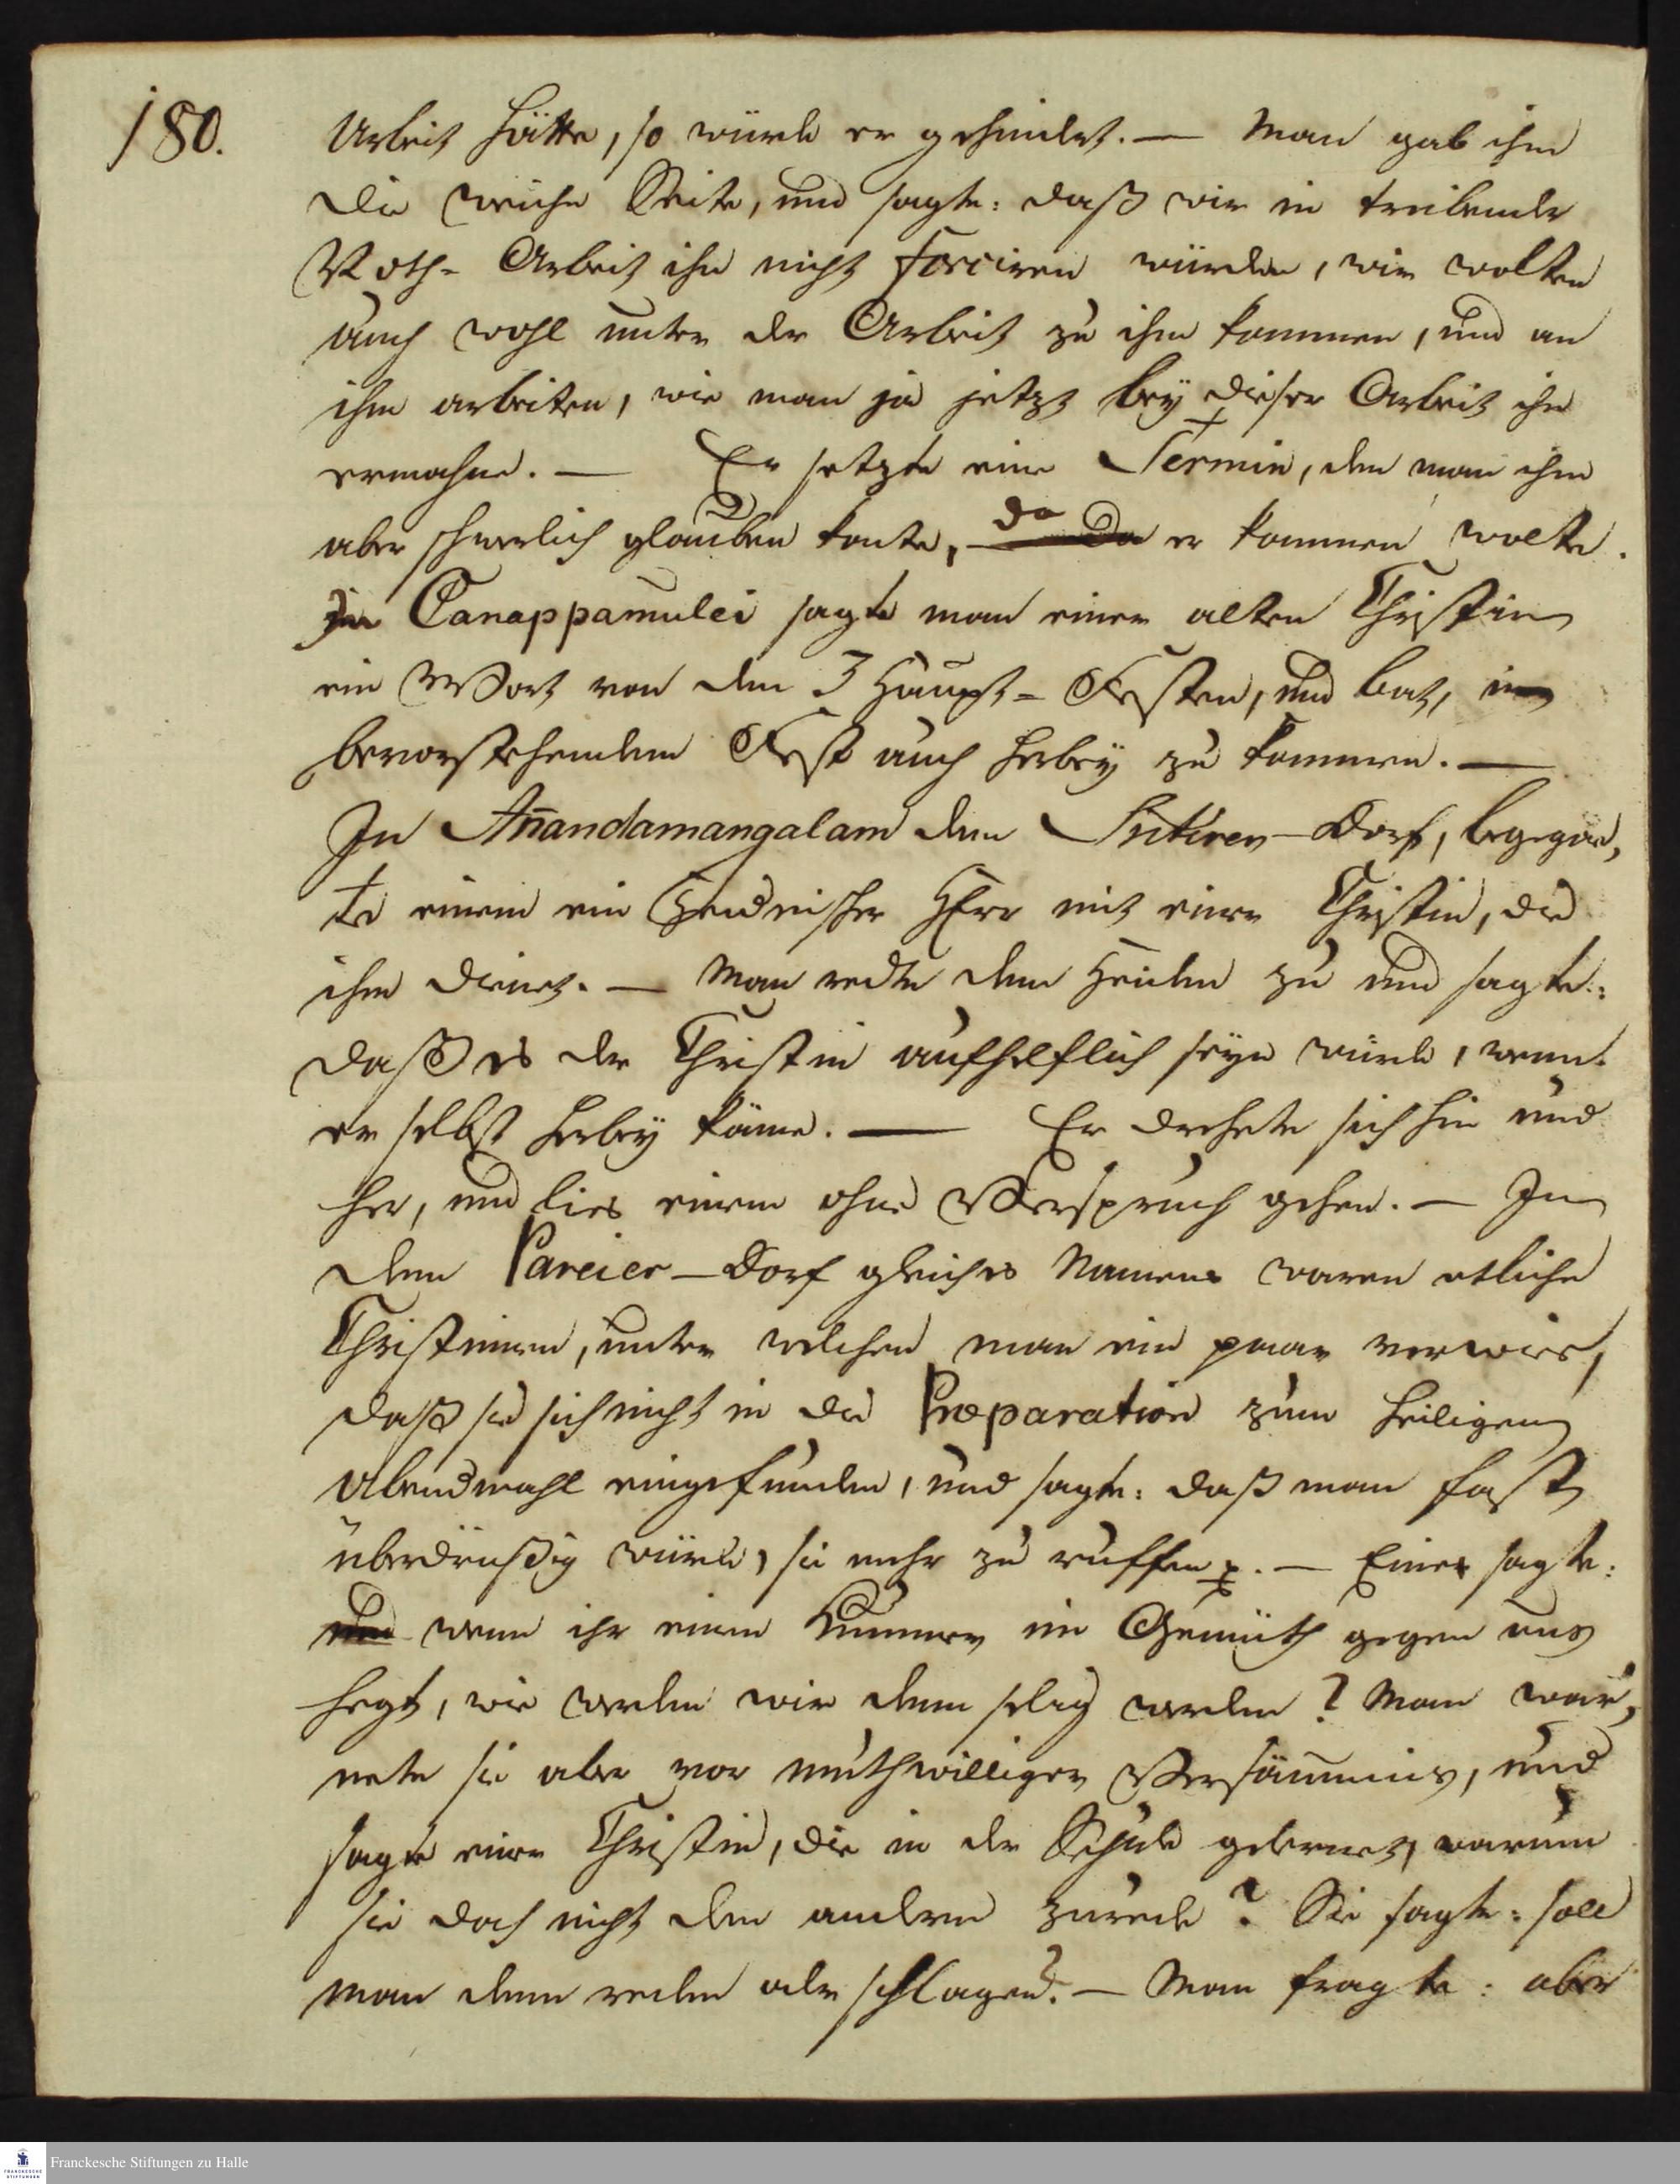 180.
Arbeit hätte, so würde er gehindert. — Man gab ihm
die weiche Seite, und sagte: daß wir in treibender
Noth-Arbeit ihn nicht forciren würden, wir wolten
auch wohl unter der Arbeit zu ihm kommen, und an
ihm arbeiten, wie man ja jetzt bey dieser Arbeit ihn
ermahne. — Er setzte einen Termin, den man ihm
aber schwerlich glauben konte, da er kommen wolte.
In Canappamulei sagte man einer alten Christin
ein Wort von den 3 Haupt-Festen, und bat, im
bevorstehenden Fest auch herbey zu kommen. —
In Añandamangalam dem Sutirer-Dorf, begegne,
te einem ein Heidnischer Herr mit einer Christin, die
ihm dienet. — Man redte dem Heiden zu und sagte:
daß es der Christin aufhelflich seyn würde, wenn
er selbst herbey käme. — Er drehete sich hin und
her, und lies einem ohne Verspruch gehen. — In
dem Pareier-Dorf gleiches Namens waren etliche
Christinnen, unter welchen man ein paar verwies,
daß sie sich nicht in die Præparation zum heiligen
Abendmahl eingefunden, und sagte: daß man fast
überdrüßig würde, sie mehr zu ruffen p. — Eine sagte:
wenn ihr einen Kummer im Gemüth gegen uns
hegt, wie werden wir denn selig werden? Man war,
nete sie aber vor muthwilliger Versäumnis, und
sagte einer Christin, die in der Schule gelernet, warum
sie doch nicht den andern zurede? Sie sagte: soll
man denn reden oder schlagen? — Man fragte: aber
Franckesche Stiftungen zu Halle